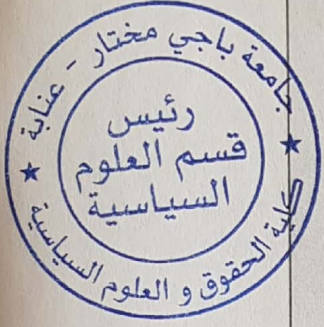 جامعة باجي مختار - عنابة
رئيس
قسم العلوم
السياسية
كلية الحقوق و العلوم السياسية